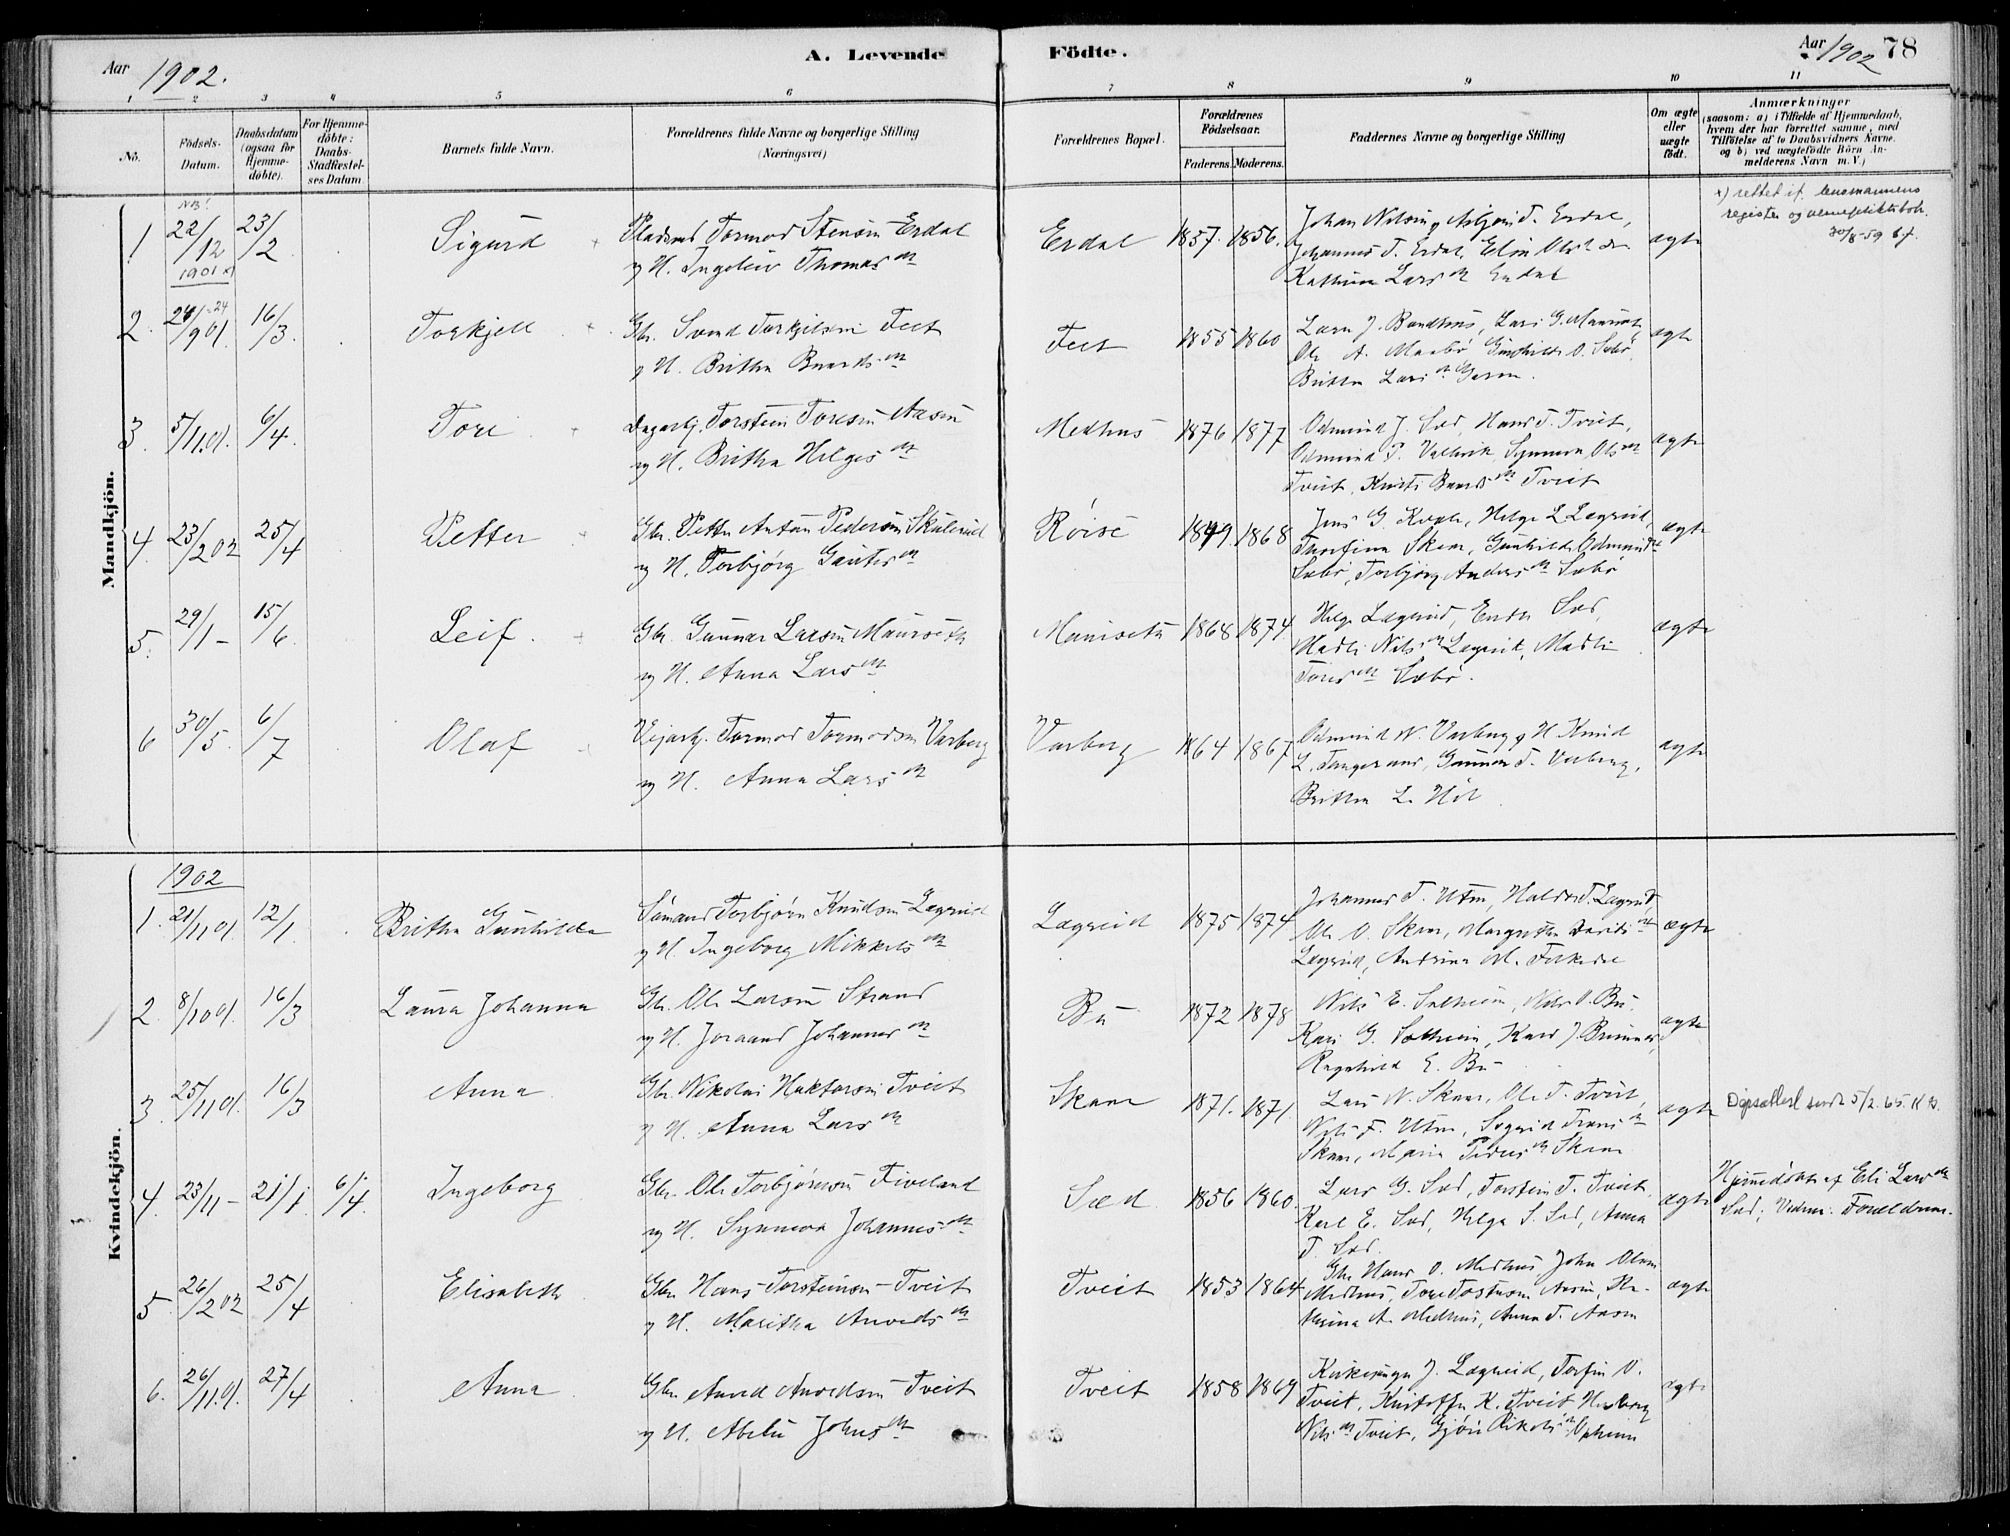 Aar 1902.
A. Levende Födte.
Aar 1902 78
1 2 3 4 5 6 7 8 9 10 11
No.
Födsels-Datum.
Daabsdatum (ogsaa for Hjemme-döbte).
For Hjemme-döbte: Daabs-Stadfæstel-ses Datum
Barnets fulde Navn.
Forældrenes fulde Navne og borgerlige Stilling (Næringsvei)
Forældrenes Bopæl.
Forældrenes Födselsaar.
Faderens. Moderens.
Faddernes Navne og borgerlige Stilling
Om ægte eller uægte födt.
Anmærkninger
(saasom: a) i Tilfælde af Hjemmedaab,
hvem der har forrettet samme, med
Tilföielse af to Daabsvidners Navne.
og b) ved uægtefödte Börn An-
melderens Navn m.V.)
Mandkjön.
1 22/12 1901 x) 23/2 Sigurd
Pladsmd Tormod Stensen Erdal
og H. Ingeleiv Thomas dtr
Erdal 1857. 1856.
Johan Nilsen og Asbjørn T. Erdal,
Johannes T. Erdal, Elin Ols dtr
Kathrina Lars dtr Erdal
ægte
x) rettet if. lensmannens
register og
30/8-59
2. 24/901. 16/3. Torkjell
Gbr. Svend Torkjelsen Feet
og H. Britha Baards dtr
Feet 1855 1860
Ole A. Maabø, Gunhilda O. Sæbø,
Britha Lars dtr Garen.
ægte
3. 5/11.01. 6/4. Tore
Dagarbj. Torstein Toresen Aasen
og H. Britha Helges dtr
Medhus 1876 1877
Odmund J. Sæd, Hans T. Tveit,
Odmund P. Vallevik, Synneva Ols dtr
Tveit, Kristi Baards dtr Tveit
ægte
4. 23/2 02 25/4 Petter
Gbr. Petter Anton Pedersen Skulerud
og H. Torbjørg Gauters dtr
Røise 1849. 1868
Jens G. Kvale, Helge L. Lægreid,
Torfinn Skaar, Gunhilda Odmunds dtr
Sæbø, Torbjørg Anders dtr Sæbø
ægte
5. 29/1 - 15/6. Leif.
Gbr. Gunnar Larsen Maurseth
og H. Anna Lars dtr
Maurseth 1868 1874
Helge Lægreid, Endre Sæd,
Madli Nils dtr Lægreid, Madli
Tores dtr Sæbø.
ægte
6 30/5. 6/7 Olaf
Vejarbj. Tormod Tormodsen Varberg
og H. Anna Lars dtr
Varberg 1864 1867
Odmund N. Varberg og H. Knud
L. Tangeraas, Gunnar T. Varberg,
Britha L. Hol
ægte
Kvindekjön.
1902
1. 21/11 01. 12/1. Britha Gunhilda
Sømand Torbjørn Knudsen Lægreid
og H. Ingeborg Mikkels dtr
Lægreid 1875 1874
Johannes T. Utne, Haldor T. Lægreid
Ole O. Skaar, Margretha Davids dtr
Lægreid, Andrina M.
ægte
2. 8/10 01. 16/3 Laura Johanna
Gbr. Ole Larsen Strand
og H. Joraand Johannes dtr
Bu 1872 1878
Nils E. Sætheim, Nils O. Bu.
Kari G. Sætheim, Kari J. Brimnes,
Ragnhild E. Bu
ægte
3. 25/11 01. 16/3 Anna
Gbr. Nikolai Haktorsen Tveit
og H. Anna Lars dtr
Skaar 1871. 1871.
Lars N. Skaar, Ole T. Tveit,
Nils T. Utne, Sigrid Frans dtr
Skaar, Maria Peders dtr Skaar
ægte
Dåpsattest sendt 5/2. 65.
4. 23/11 - 21/1 6/4. Ingeborg
Gbr. Ole Torbjørnsen Fiveland
og H. Synneva Johannes dtr
Sæd 1856 1860.
Lars G. Sæd, Torstein T. Tveit
Karl E. Sæd, Helga S. Sæd, Anna
T. Sæd.
ægte
Hjemmedøbt af Eli Lars dtr
Sæd; Vidner: Forældrene.
5. 26/2 02 25/4 Elisabeth
Gbr. Hans Torsteinsen Tveit
og H. Maritha Arveds dtr
Tveit 1853 1864
Gbr. Hans O. Medhus John Olsen
Medhus, Tore Tostensen Aasen,
A. Medhus, Anna T. Aasen
ægte
6. 26/11.01. 27/4 Anna
Gbr. Arved Arvedsen Tveit
og H. Abelu Johns dtr
Tveit 1858 1869
Kirkesanger J. Lægreid, Torfin O.
Tveit, Kristoffer K. Tveit, Herborg
Nils dtr Tveit, Gjøri Opheim
ægte